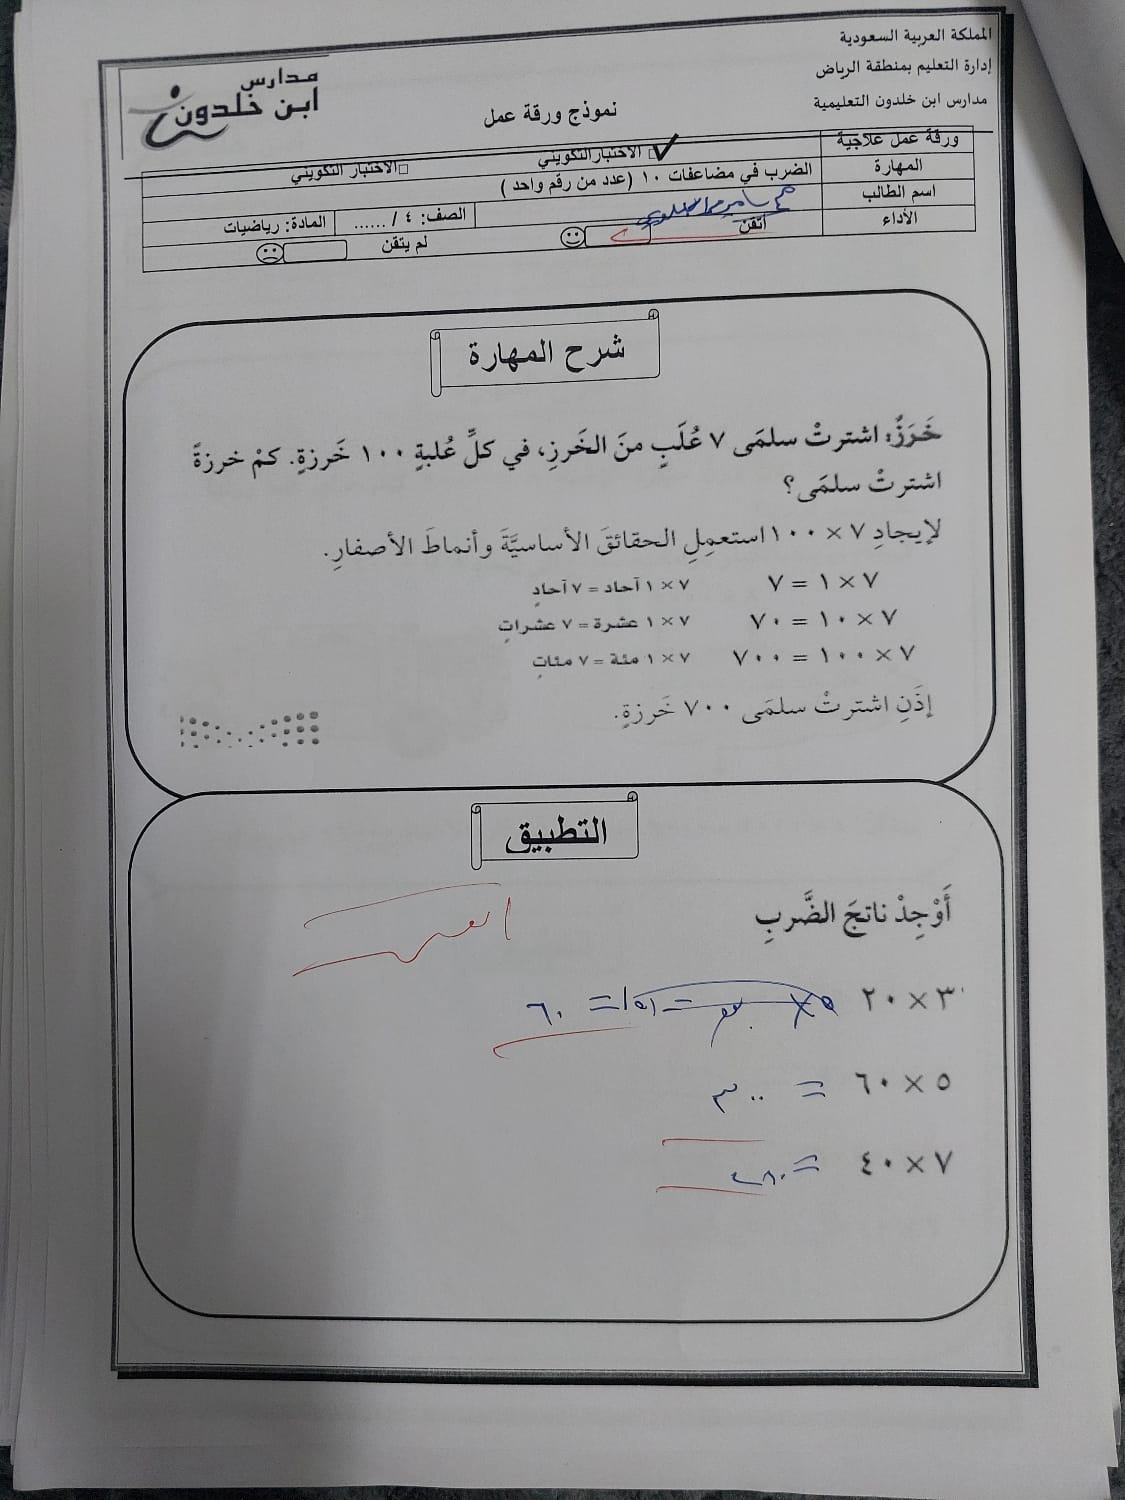 المملكة العربية السعودية
إدارة التعليم بمنطقة الرياض
مدارس ابن خلدون التعليمية
مدارس
ابن خلدون
نموذج ورقة عمل
ورقة عمل علاجية
الاختبار التكويني
الاختبار التكويني
المهارة
الضرب في مضاعفات ١٠ (عدد من رقم واحد )
اسم الطالب
الصف: ٤ / ......
المادة: رياضيات
الأداء
أتقن
لم يتقن
شرح المهارة
خَرَزٌ: اشترتْ سلمَى ٧ عُلَبٍ منَ الخَرزِ، في كلِّ عُلبةٍ ١٠٠ خَرزةٍ. كمْ خرزةً
اشترتْ سلمَى؟
لإيجادِ ٧ × ١٠٠ استعمِلِ الحقائقَ الأساسيَّةَ وأنماطَ الأصفارِ.
٧ × ١ = ٧ ٧ × ١ آحاد = ٧ آحادٍ
٧ × ١٠ = ٧٠ ٧ × ١ عشرة = ٧ عشراتٍ
٧ × ١٠٠ = ٧٠٠ ٧ × ١ مئة = ٧ مئاتٍ
إذَنِ اشترتْ سلمَى ٧٠٠ خَرزةٍ.
التطبيق
أَوْجِدْ ناتجَ الضَّربِ
٣ × ٢٠ = ٦٠
٥ × ٦٠ = ٣٠٠
٧ × ٤٠ = ٢٨٠